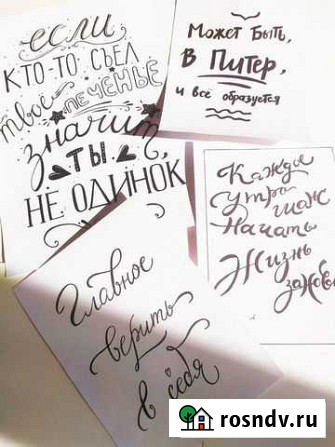 если
кто-то съел
твоё печенье
значит
ты
не одинок
Может быть,
в Питер,
и всё образуется
Каждое
утро шанс
начать
жизнь
заново
Главное
верить
в себя
rosndv.ru